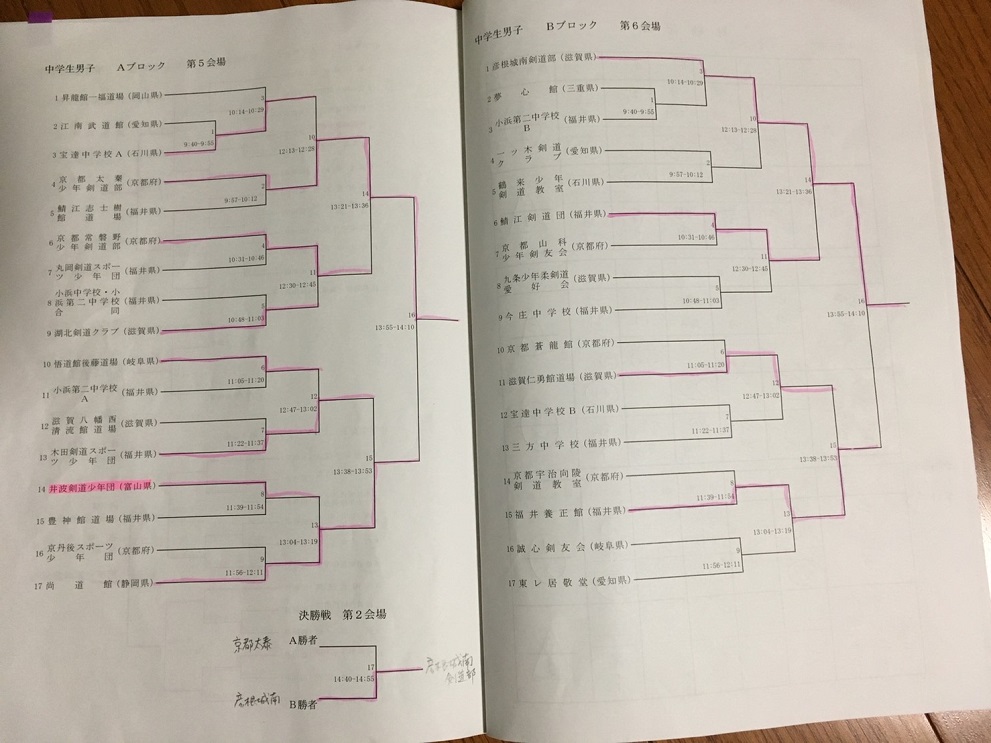 中学生男子 Aブロック 第5会場
1 昇龍館一福道場 (岡山県)
2 江南武道館 (愛知県)
3 宝達中学校A (石川県)
4 京都太秦少年剣道部 (京都府)
5 鯖江志士樹館道場 (福井県)
6 京都常磐野少年剣道部 (京都府)
7 丸岡剣道スポーツ少年団 (福井県)
8 小浜中学校・小浜第二中学校合同 (福井県)
9 湖北剣道クラブ (滋賀県)
10 悟道館後藤道場 (岐阜県)
11 小浜第二中学校A (福井県)
12 滋賀八幡西清流館道場 (滋賀県)
13 木田剣道スポーツ少年団 (福井県)
14 井波剣道少年団 (富山県)
15 豊神館道場 (福井県)
16 京丹後スポーツ少年団 (京都府)
17 尚道館 (静岡県)
1
9:40-9:55
3
10:14-10:29
2
9:57-10:12
10
12:13-12:28
4
10:31-10:46
5
10:48-11:03
11
12:30-12:45
14
13:21-13:36
6
11:05-11:20
7
11:22-11:37
12
12:47-13:02
8
11:39-11:54
9
11:56-12:11
13
13:04-13:19
15
13:38-13:53
16
13:55-14:10
決勝戦 第2会場
京都太秦 A勝者
17
14:40-14:55
彦根城南 B勝者
彦根城南
剣道部
中学生男子 Bブロック 第6会場
1 彦根城南剣道部 (滋賀県)
2 夢心館 (三重県)
3 小浜第二中学校B (福井県)
4 一ッ木剣道クラブ (愛知県)
5 鶴来少年剣道教室 (石川県)
6 鯖江剣道団 (福井県)
7 京都山科少年剣友会 (京都府)
8 九条少年柔剣道愛好会 (滋賀県)
9 今庄中学校 (福井県)
10 京都蒼龍館 (京都府)
11 滋賀仁勇館道場 (滋賀県)
12 宝達中学校B (石川県)
13 三方中学校 (福井県)
14 京都宇治向陵剣道教室 (京都府)
15 福井養正館 (福井県)
16 誠心剣友会 (岐阜県)
17 東レ居敬堂 (愛知県)
1
9:40-9:55
3
10:14-10:29
2
9:57-10:12
10
12:13-12:28
4
10:31-10:46
5
10:48-11:03
11
12:30-12:45
14
13:21-13:36
6
11:05-11:20
7
11:22-11:37
12
12:47-13:02
8
11:39-11:54
9
11:56-12:11
13
13:04-13:19
15
13:38-13:53
16
13:55-14:10